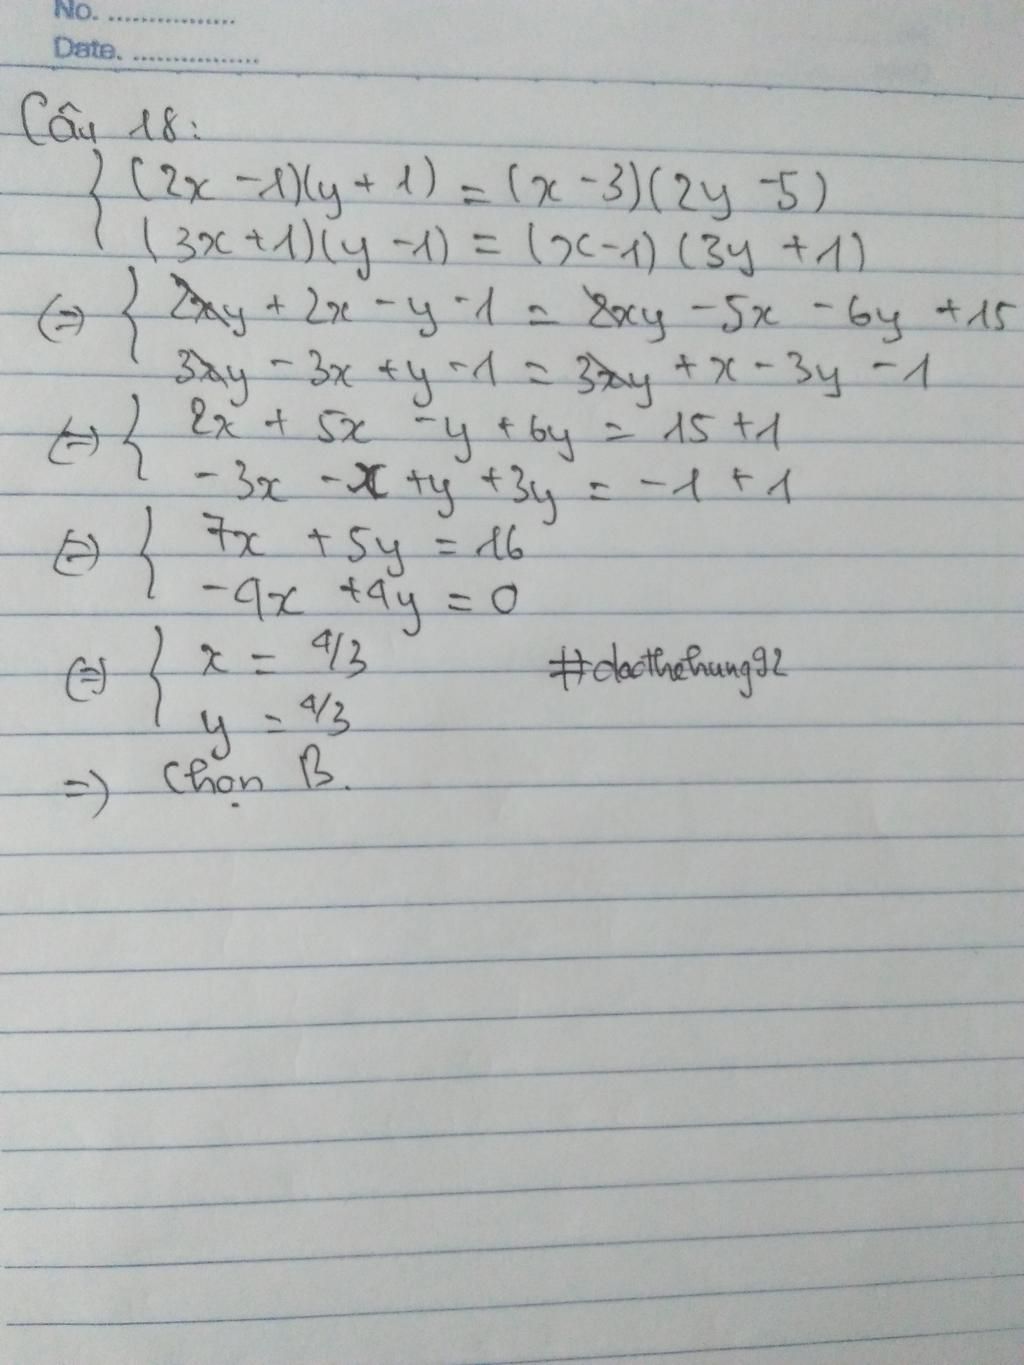 No. ................
Date. ................
Câu 18:
{ (2x - 1)(y + 1) = (x - 3)(2y - 5)
(3x + 1)(y - 1) = (x - 1) (3y + 1)
(=) { 2xy + 2x - y - 1 = 2xy - 5x - 6y + 15
3xy - 3x + y - 1 = 3xy + x - 3y - 1
(=) { 2x + 5x - y + 6y = 15 + 1
- 3x - x + y + 3y = - 1 + 1
(=) { 7x + 5y = 16
- 4x + 4y = 0
(=) { x = 4/3 #daothehung92
y = 4/3
=) Chọn B.